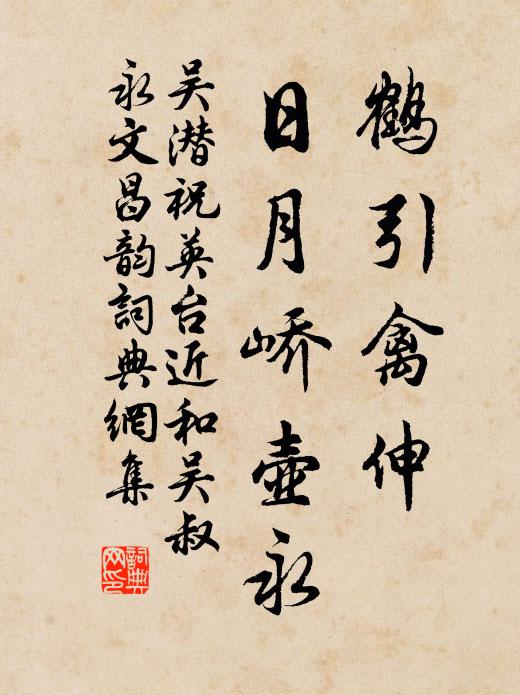 鶴引禽伸
日月峤壺永
吴潜祝英台近和吴叔
永文昌韵詞典網集
詞典
网印